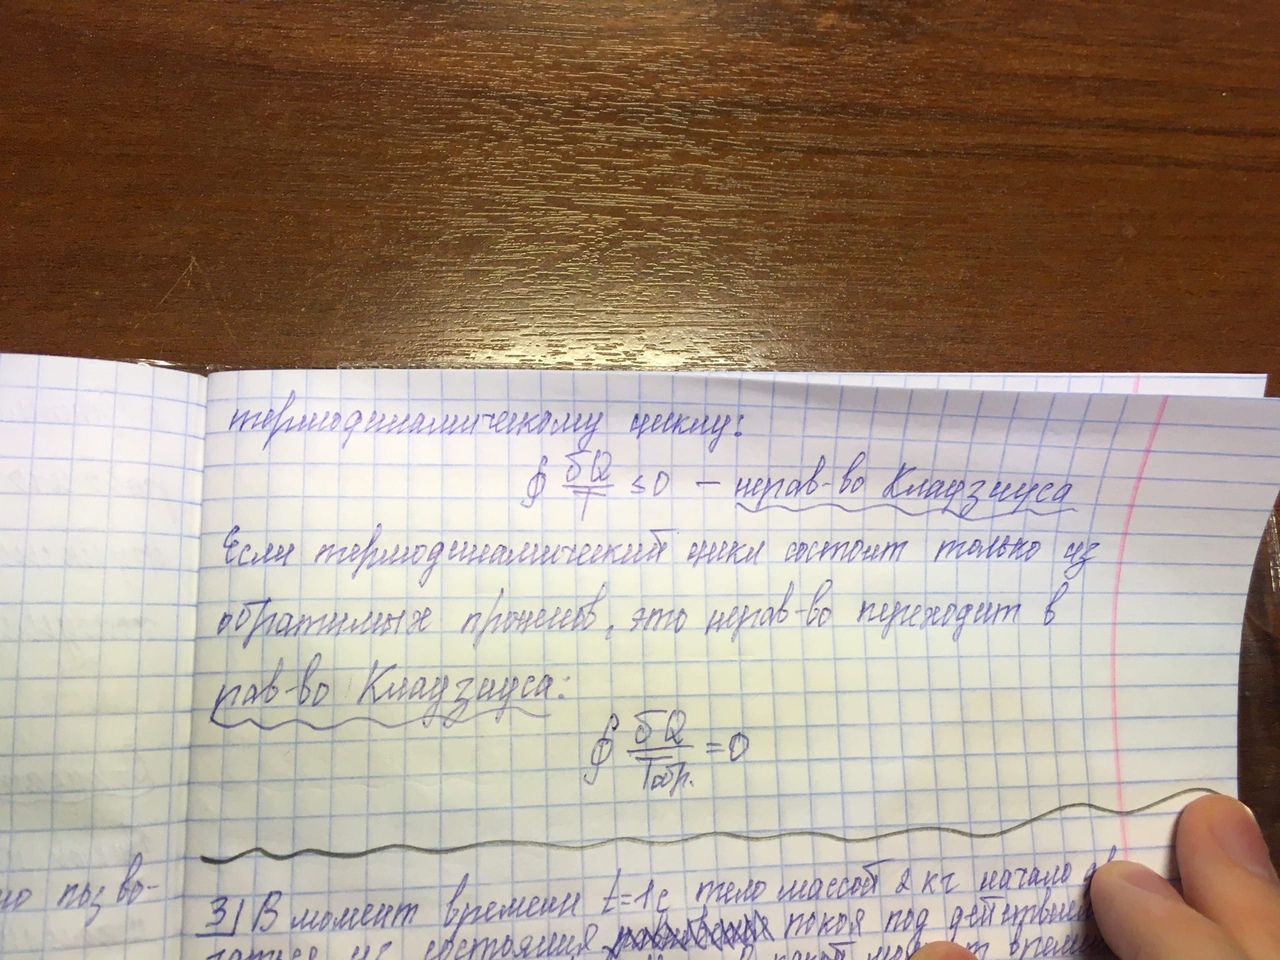 термодинамическому циклу:
∮ δQ/T ≤ 0 – нерав-во Клаузиуса
Если термодинамический цикл состоит только из
обратимых процессов, это нерав-во переходит в
рав-во Клаузиуса:
∮ δQ/Tобр. = 0
но поз во-
3) В момент времени t=1с тело массой 2 кг начало дв
из состояния покоя под действием